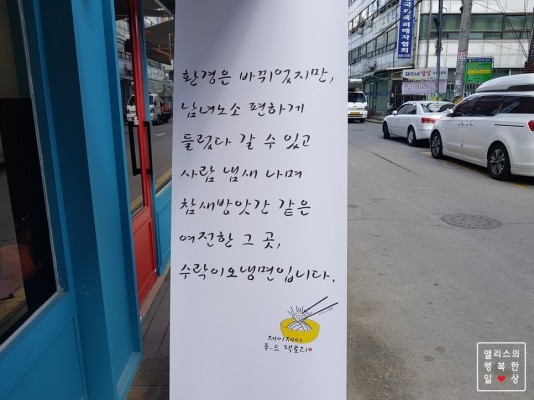 환경은 바뀌었지만,
남녀노소 편하게
들렀다 갈 수 있고
사람 냄새 나며
참새방앗간 같은
여전한 그 곳,
수락이오냉면입니다.
제이제이
푸-드 팩토리
앨리스의
행복한
일 상